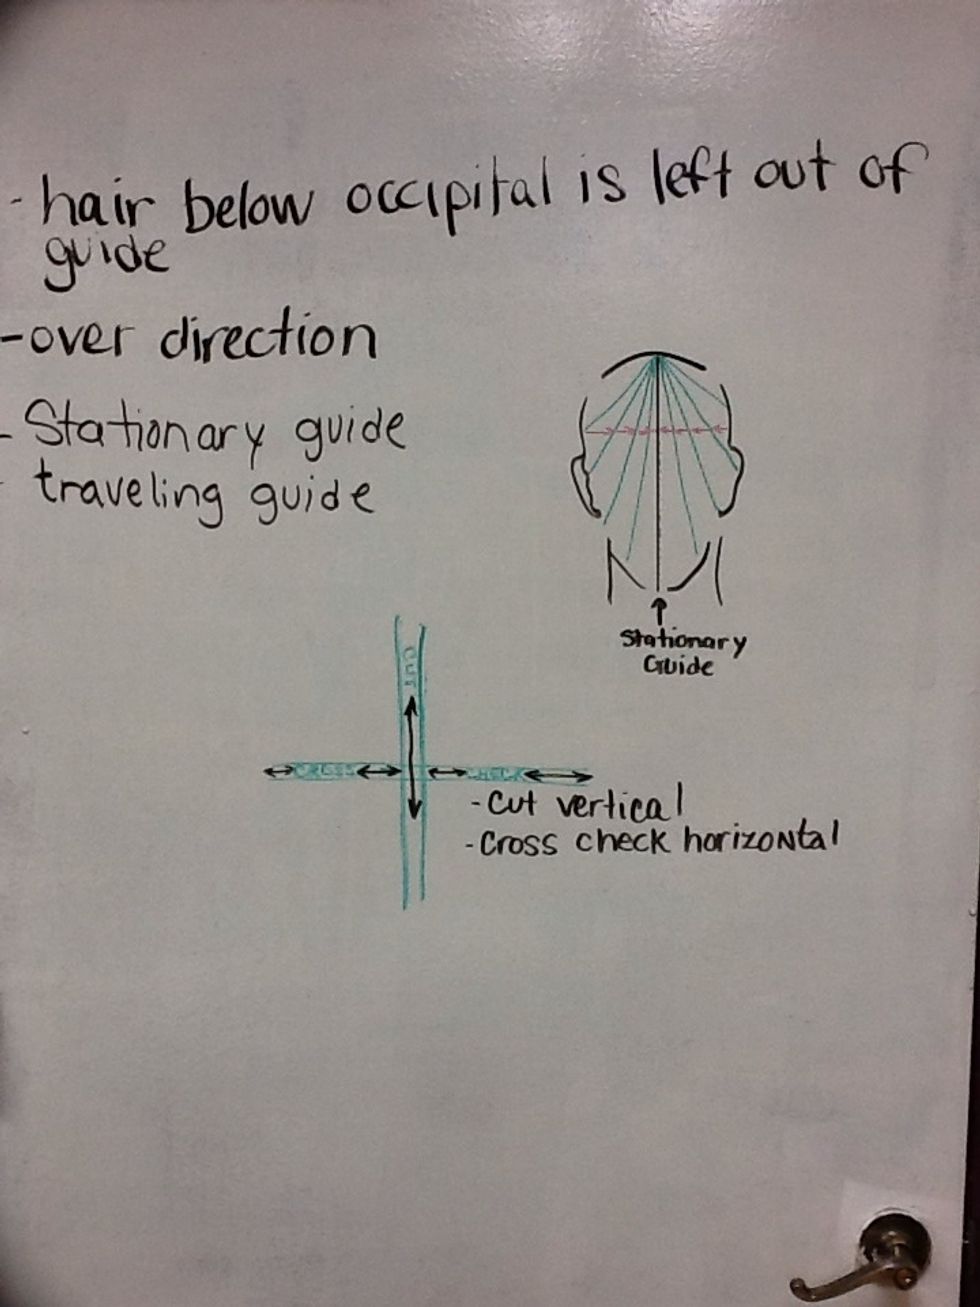 - hair below occipital is left out of
guide
- over direction
- Stationary guide
- traveling guide
Stationary
Guide
CUT
CROSS CHECK
- Cut vertical
- Cross check horizontal